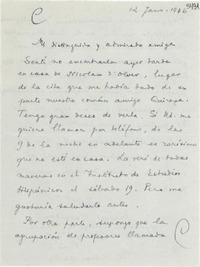 C
12 Janv. 1946
Mi distinguida y admirada amiga
Sentí no encontrarla ayer tarde
en casa de Nicolau d'Olwer, lugar
de la cita que me había dado de su
parte nuestro común amigo
Tengo gran deseo de verla. Si Ud. me
quiere llamar por teléfono, de las
9 de la noche en adelante es rarísimo
que no esté en casa. La veré de todas
maneras en el Instituto de Estudios
Hispánicos el sábado 19. Pero me
gustaría saludarla antes.
Por otra parte, supongo que la
agrupación de profesores llamada
C